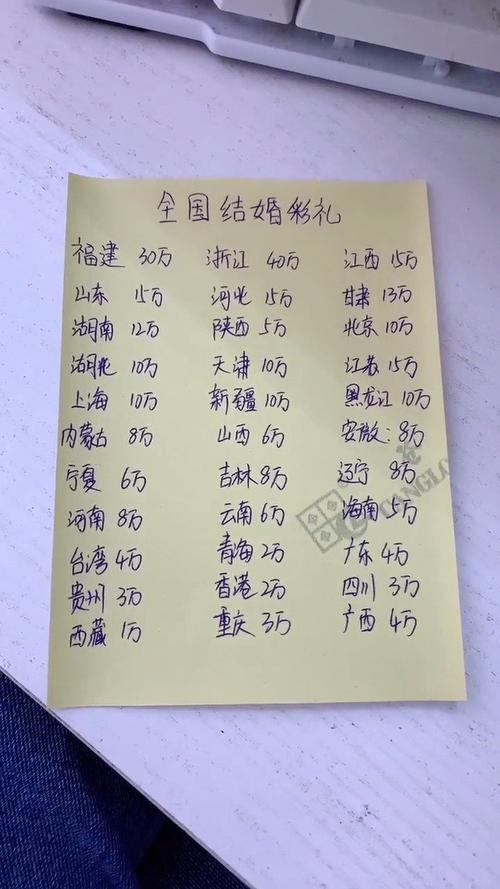 全国结婚彩礼
福建 30万 浙江 40万 江西 15万
山东 15万 河北 15万 甘肃 13万
湖南 12万 陕西 5万 北京 10万
湖北 10万 天津 10万 江苏 15万
上海 10万 新疆 10万 黑龙江 10万
内蒙古 8万 山西 6万 安徽: 8万
宁夏 6万 吉林 8万 辽宁 8万
河南 8万 云南 6万 海南 5万
台湾 4万 青海 2万 广东 4万
贵州 3万 香港 2万 四川 3万
西藏 1万 重庆 3万 广西 4万